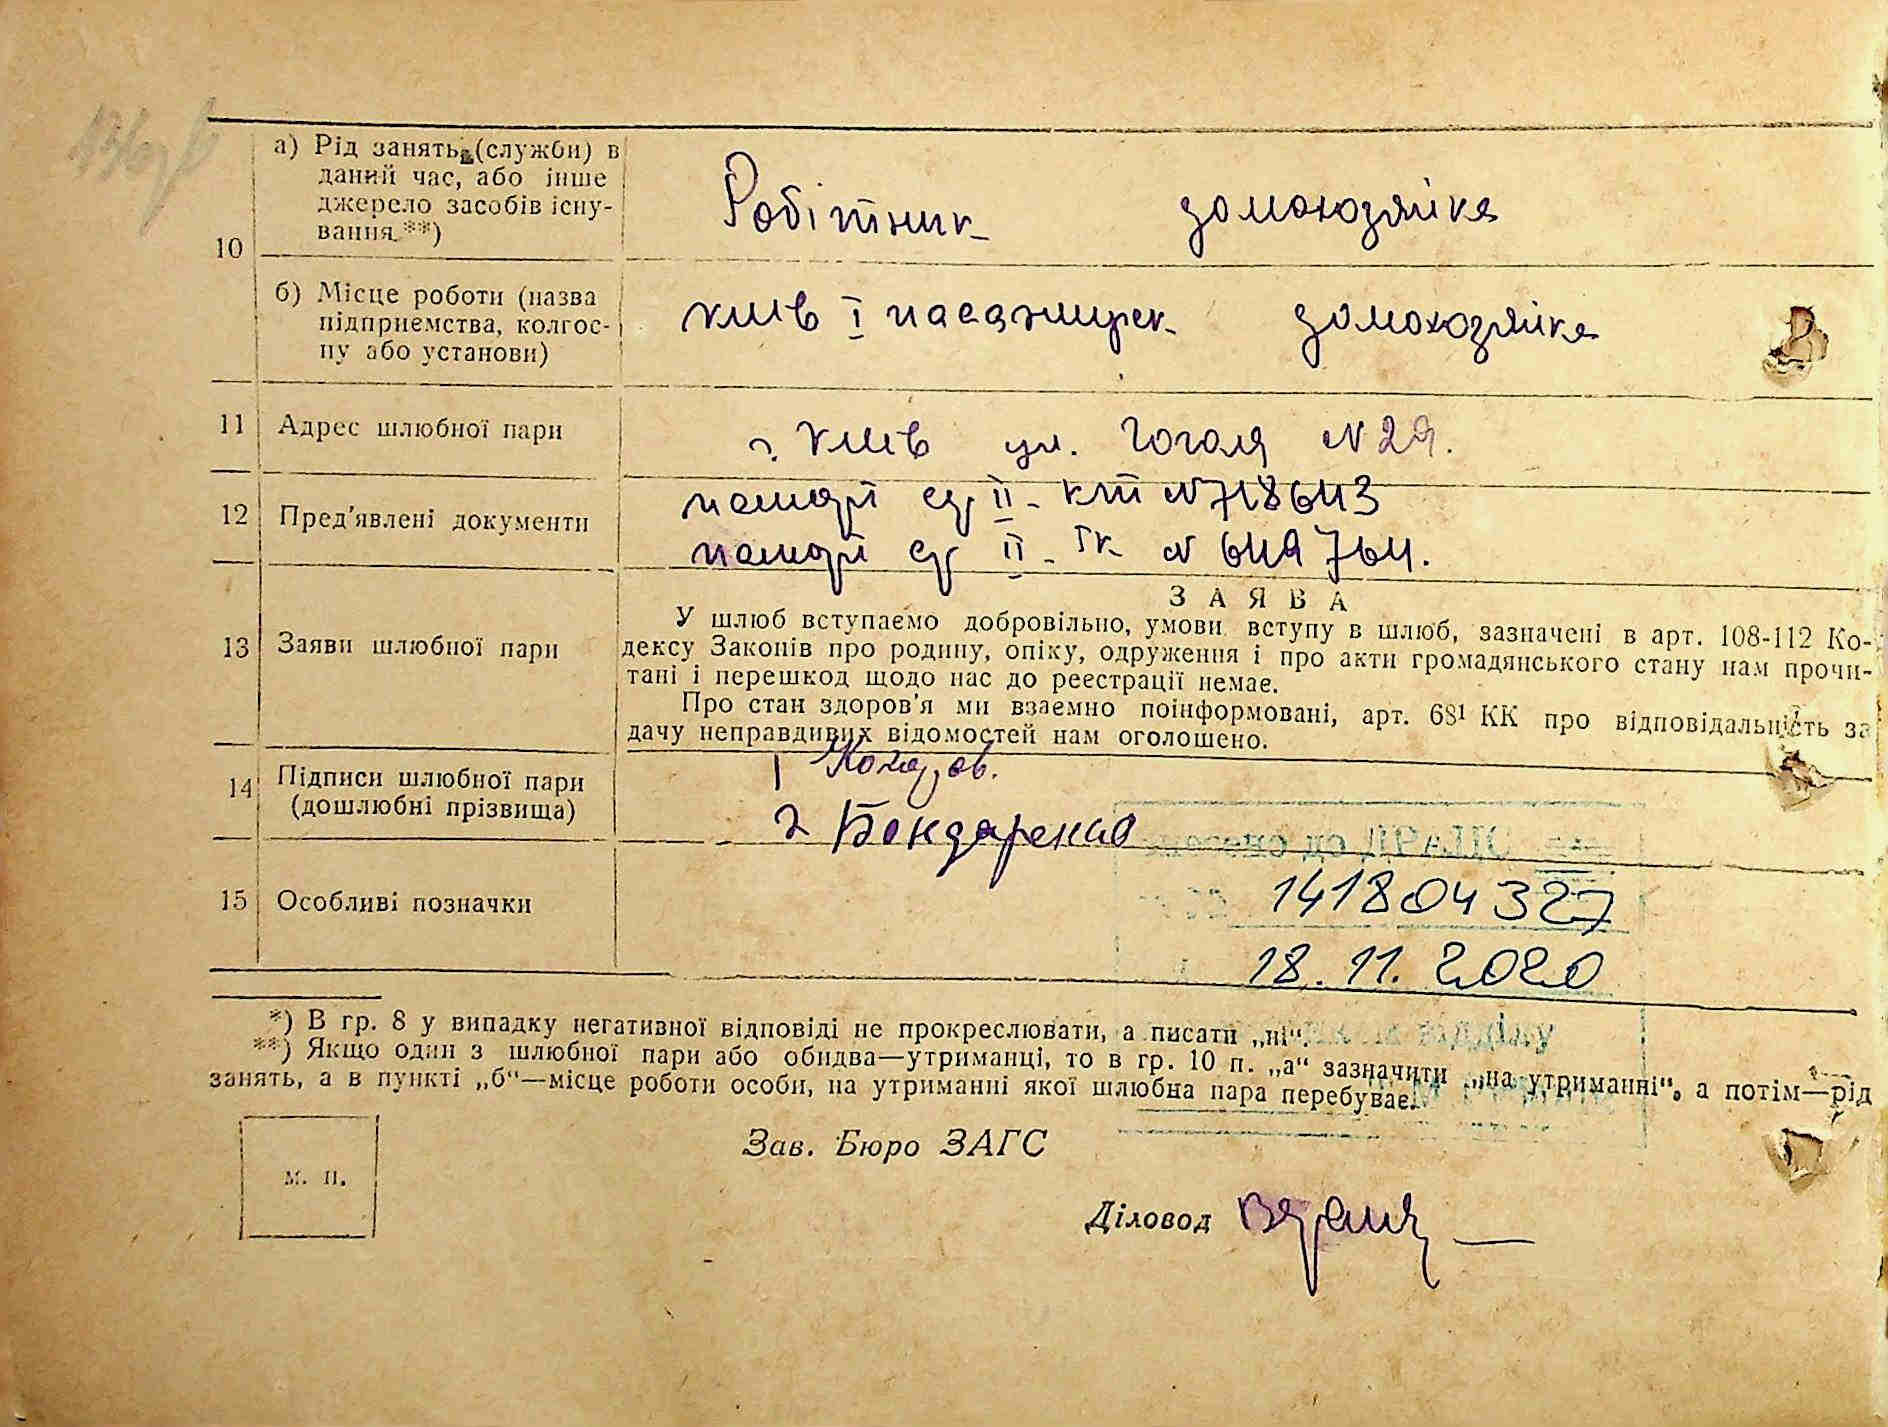 10
а) Рід занять (служби) в
даний час, або інше
джерело засобів існу-
вання.**)
Робітник домохозяйка
б) Місце роботи (назва
підприємства, колгос-
пу або установи)
київ I пасажирск домохозяйка
11 Адрес шлюбної пари
г. Київ ул. Гоголя № 29.
12 Пред'явлені документи
паспорт II - № 718643
паспорт II - № 649764.
13 Заяви шлюбної пари
ЗАЯВА
У шлюб вступаємо добровільно, умови вступу в шлюб, зазначені в арт. 108-112 Ко-
дексу Законів про родину, опіку, одруження і про акти громадянського стану нам прочи-
тані і перешкод щодо нас до реєстрації немає.
Про стан здоров'я ми взаємно поінформовані, арт. 68¹ КК про відповідальність за
дачу неправдивих відомостей нам оголошено.
14 Підписи шлюбної пари
(дошлюбні прізвища)
1
2 Бондаренко
15 Особливі позначки
141804327
18.11.2020
*) В гр. 8 у випадку негативної відповіді не прокреслювати, а писати „ні“.
**) Якщо один з шлюбної пари або обидва—утриманці, то в гр. 10 п. „а“ зазначити „на утриманні“, а потім—рід
занять, а в пункті „б“—місце роботи особи, на утриманні якої шлюбна пара перебуває.
м. п.
Зав. Бюро ЗАГС
Діловод